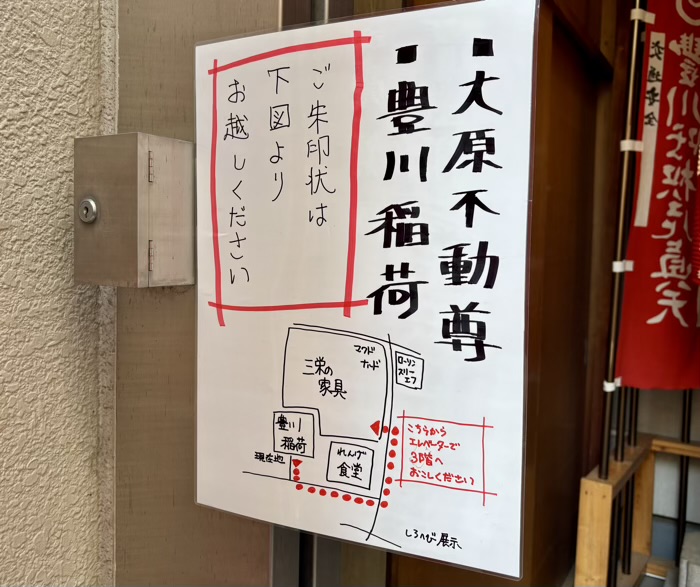 ■大原不動尊
■豊川稲荷
ご朱印状は
下図より
お越しください
マクド
ナルド
ローソン
スリー
エフ
三栄の
家具
豊川
稲荷
現在地
れんげ
食堂
こちらから
エレベーターで
3階へ
おこしください
しろへび展示
交通安全